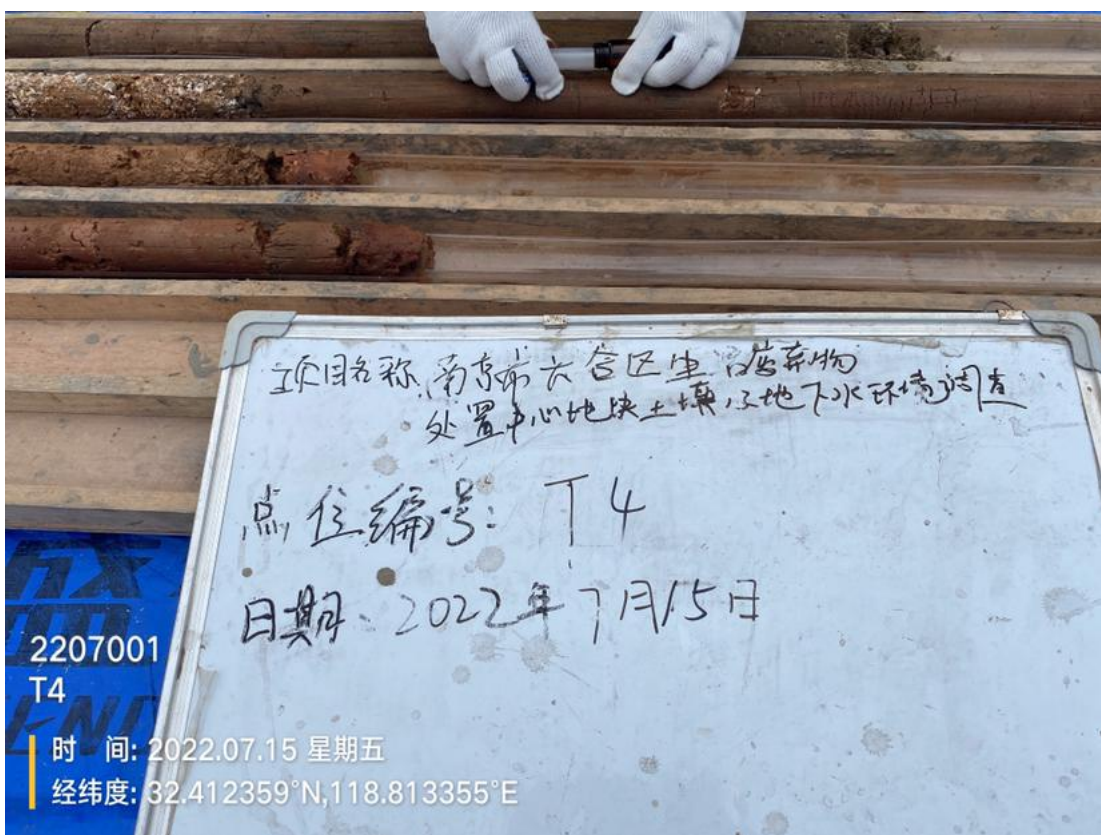 项目名称:南京市六合区生活废弃物
处置中心地块土壤及地下水环境调查
点位编号: T4
日期: 2022年7月15日
2207001
T4
时 间: 2022.07.15 星期五
经纬度: 32.412359°N,118.813355°E